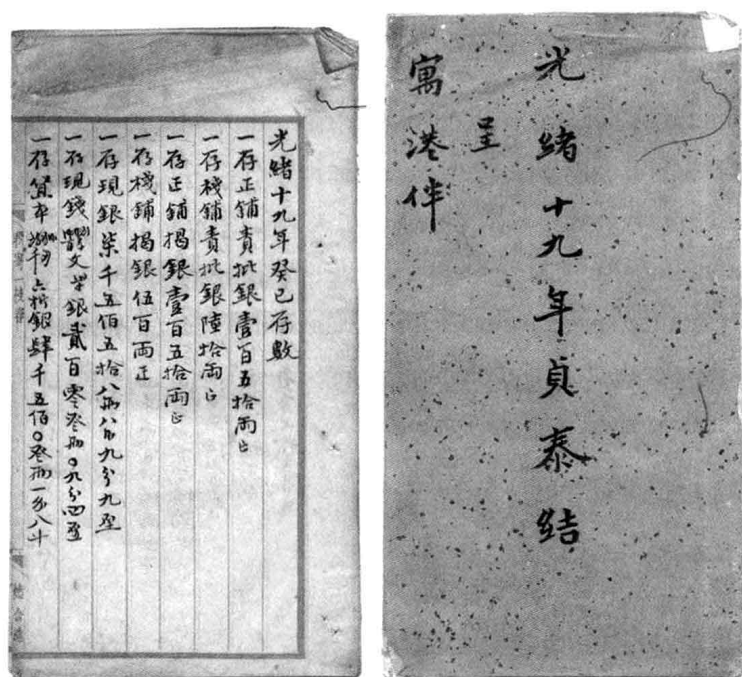 光緒十九年貞泰結
呈
寓港伴
光緒十九年癸巳存數
一存正舖責批銀壹百五拾兩正
一存棧舖責批銀陸拾兩正
一存正舖揭銀壹百五拾兩正
一存棧舖揭銀伍百兩正
一存現銀柒千五佰五拾八兩八錢九分九厘
一存現錢 文 銀貳百零 兩〇九分四厘
一存貨 六折銀肆千五佰〇 兩一錢八分